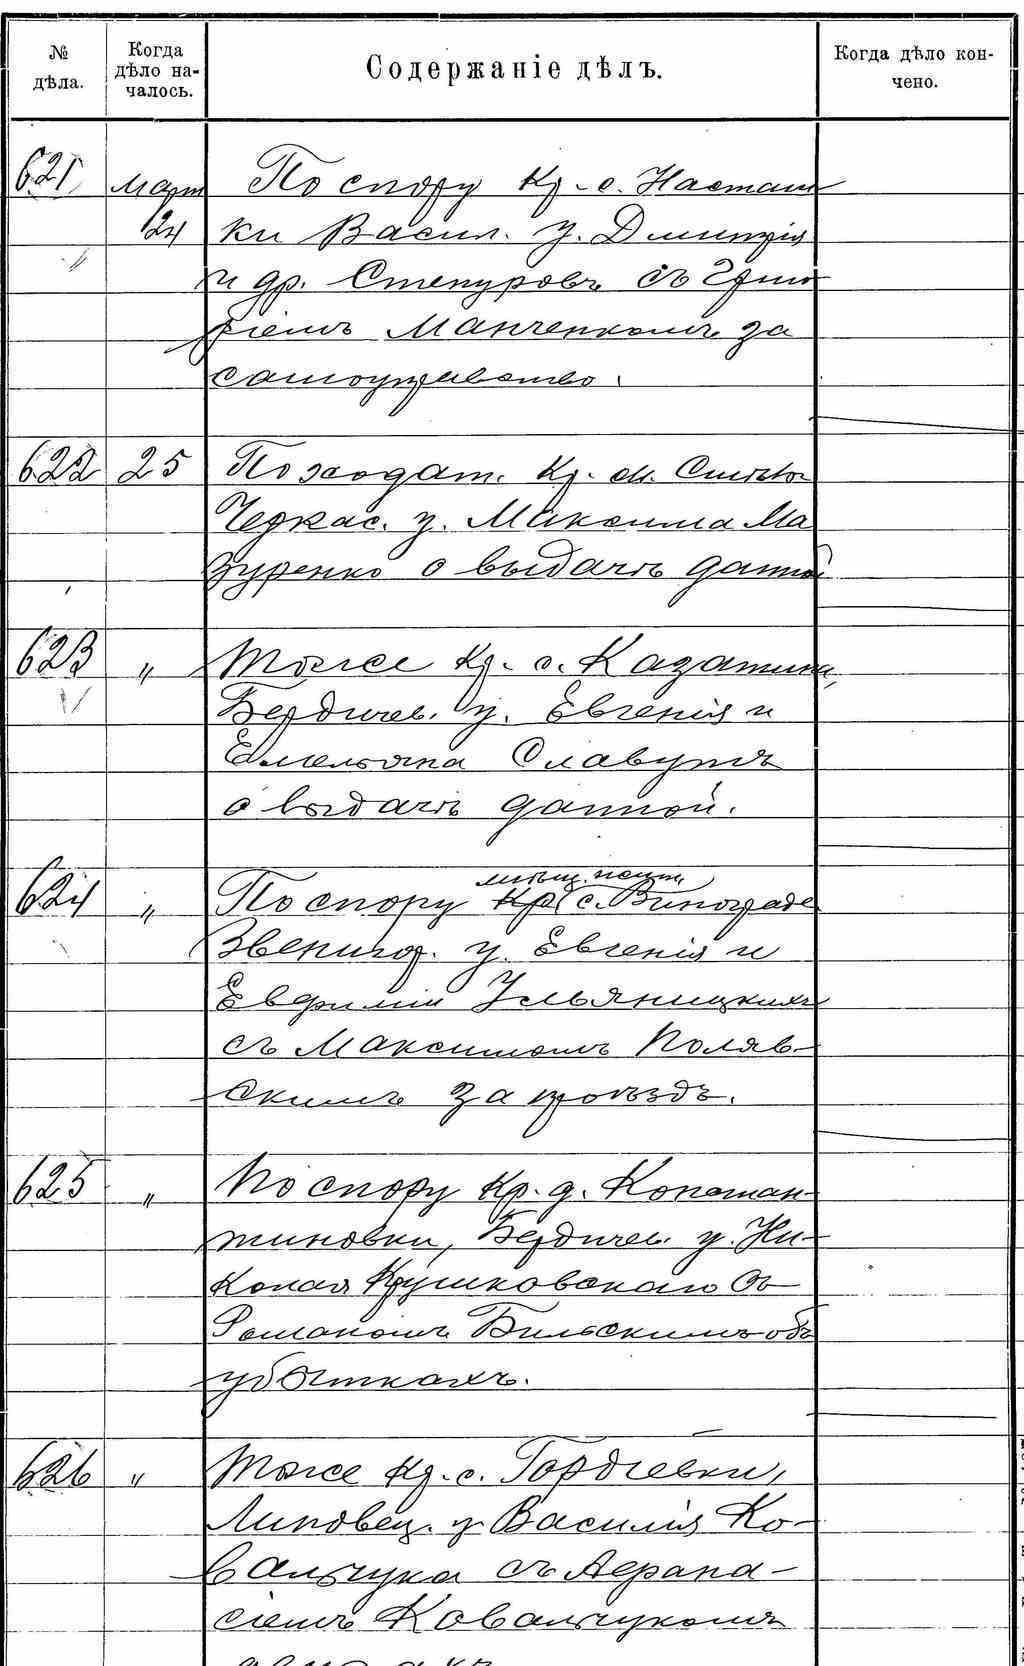 № дѣла.
Когда дѣло началось.
Содержаніе дѣлъ.
Когда дѣло кончено.
621 Март По спору Кр. с. Насташ
24 ки Васил. у. Дмитрія
и др. Степуровъ съ Григо
ріемъ Манченкомъ за
самоуправство.
622 25 По ходат. Кр. м. Смѣлы
Черкас. у. Максима Ма
зуренко о выдачѣ данной
623 " Тоже Кр. с. Казатина,
Бердичев. у. Евгенія и
Емельяна Славутъ
о выдачѣ данной.
мѣщ.
624 " По спору Кр. с. Винограда
Звенигор. у. Евгенія и
Евфиміи Ульяницкихъ
съ Максимомъ Поляв-
скимъ за проѣздъ.
625 " По спору Кр. д. Констан-
тиновки, Бердичев. у. Ни-
колая Крушковскаго съ
Романомъ Бильскимъ объ
убыткахъ.
626 " Тоже Кр. с. Гордіевки,
Липовец. у. Василія Ко-
вальчука съ Афана-
сіемъ Ковальчукомъ